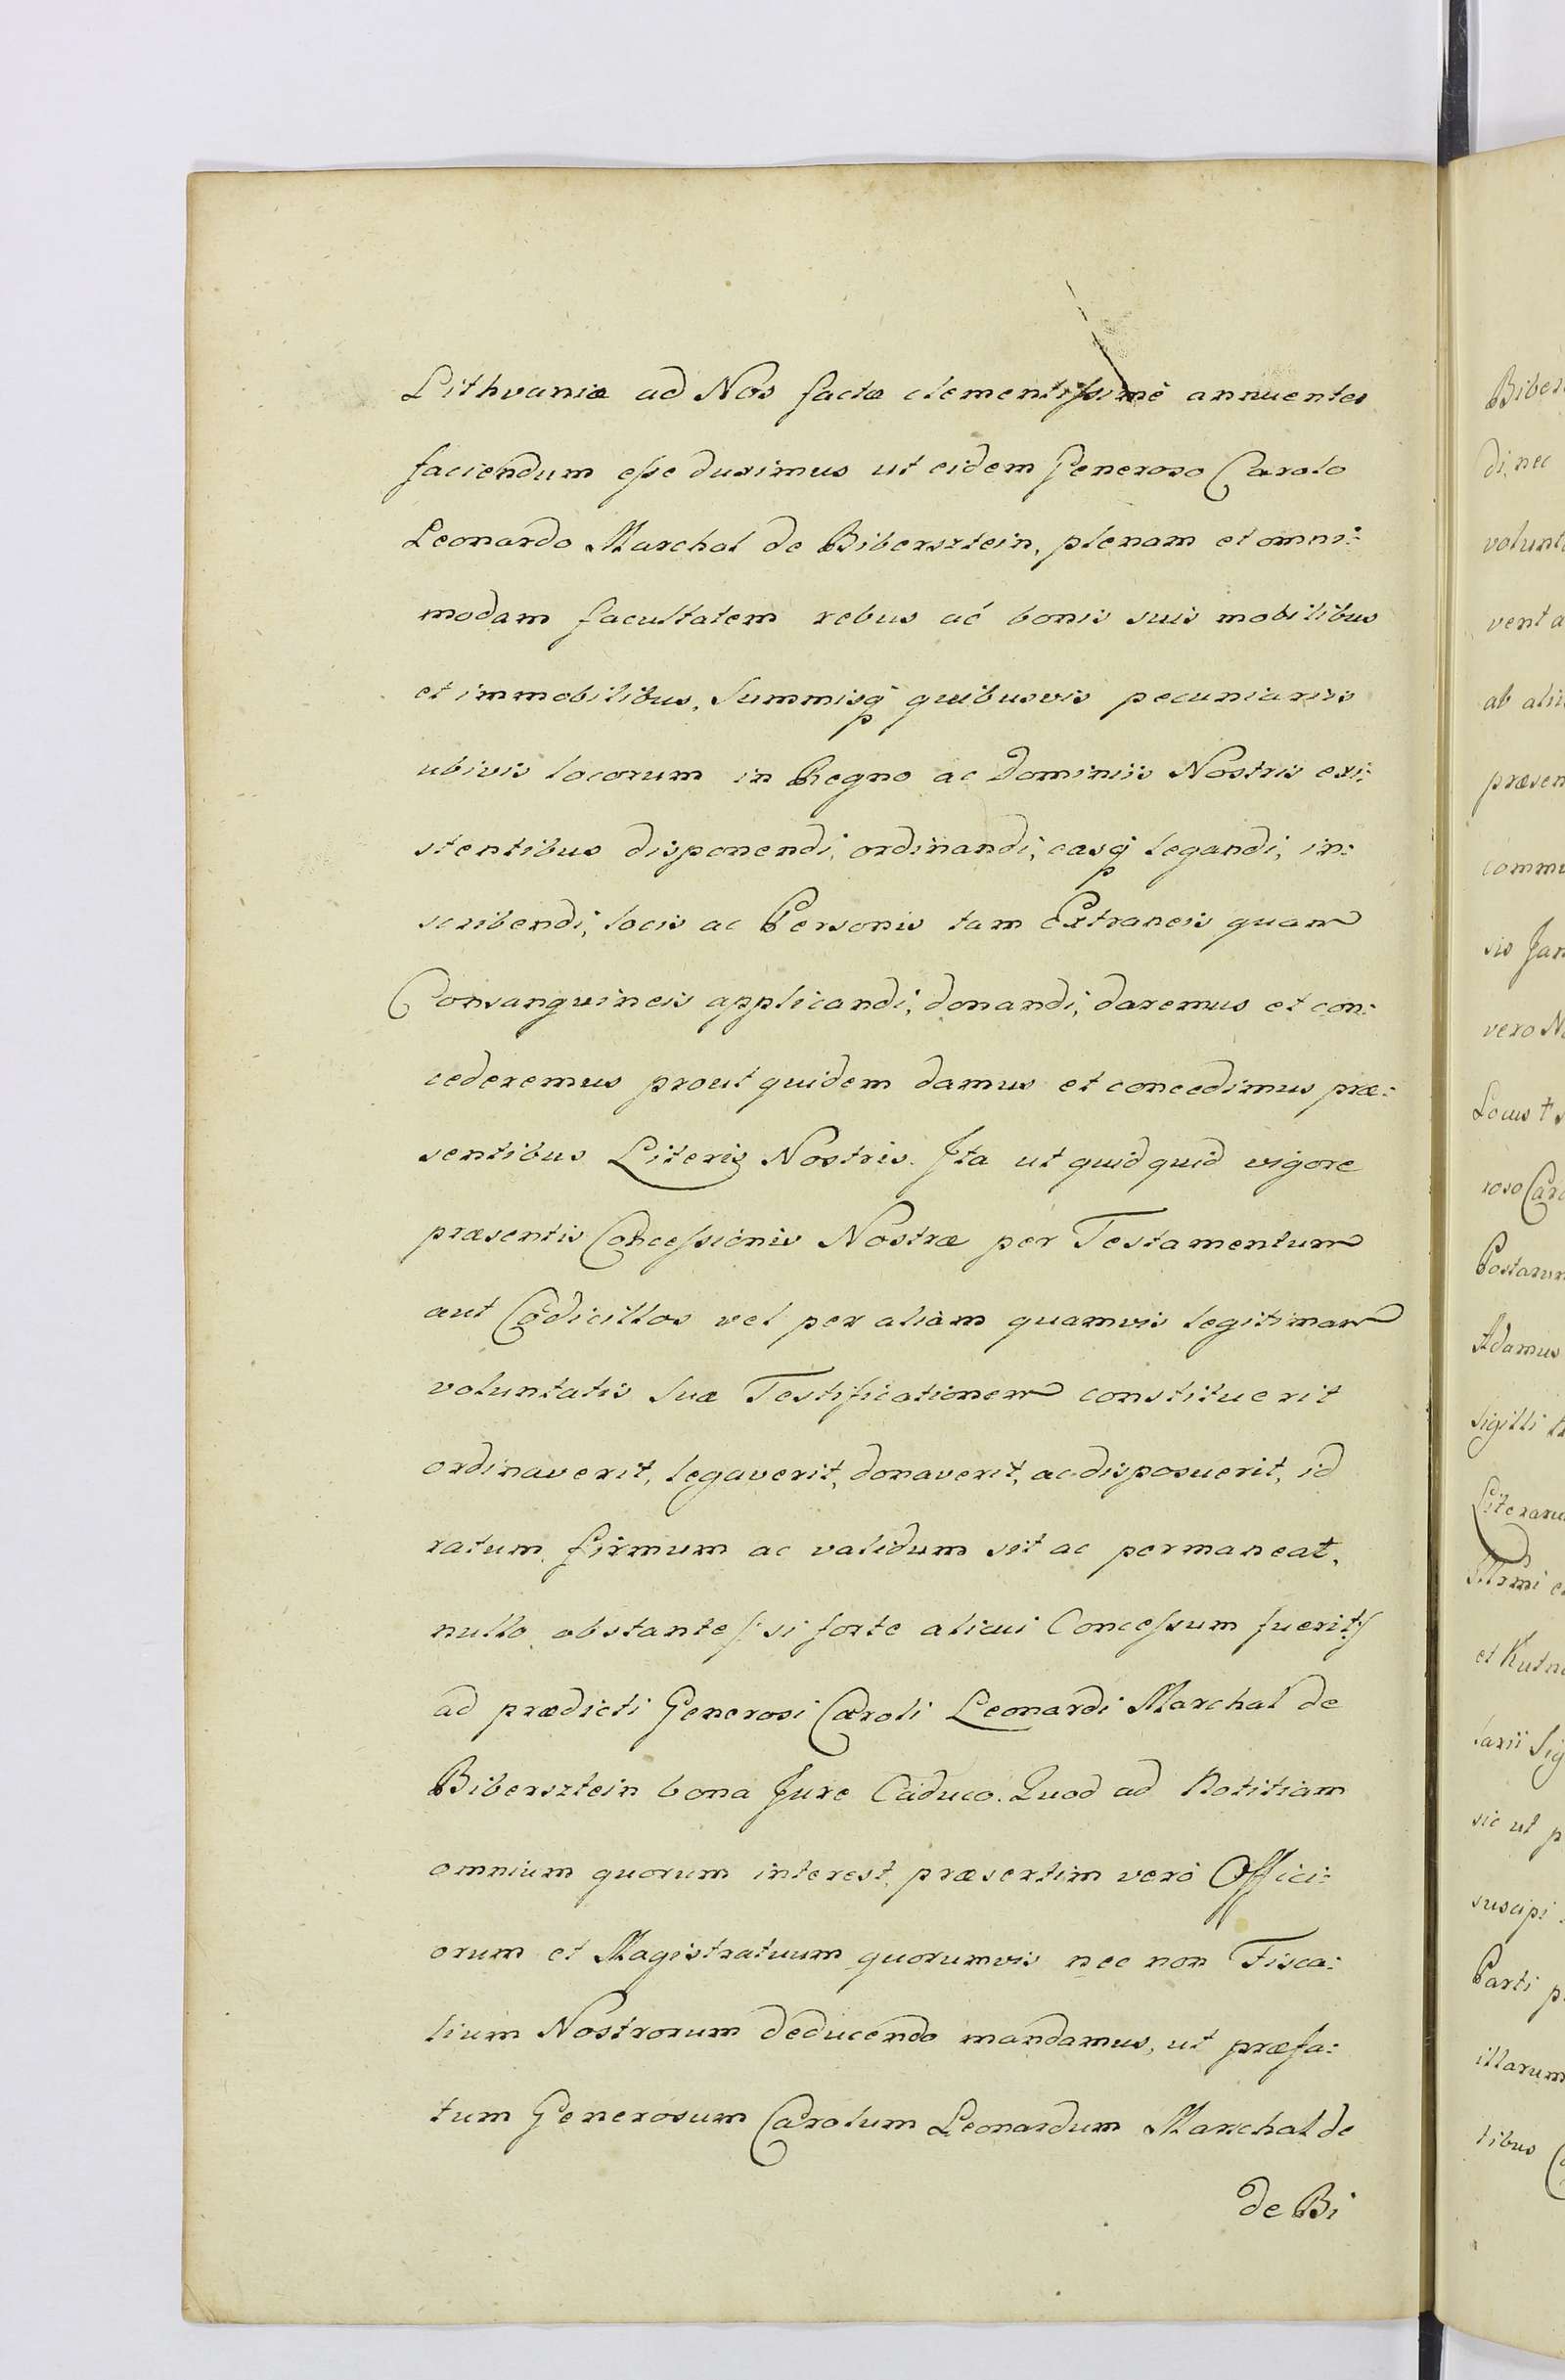 Lithvaniæ ad Nos factæ clementissimè annuentes
faciendum esse duximus ut eidem Generoso Carolo
Leonardo Marchal de Bibersztein, plenam et omni:
modam facultatem rebus ac bonis suis mobilibus
et immobilibus, Summisq́ quibusvis pecuniariis
ubivis locorum in Regno ac Dominiis Nostris exi:
stentibus disponendi, ordinandi, easq́ legandi, in:
scribendi, locis ac Personis tam Extraneis quam
Consangvineis applicandi, donandi, daremus et con:
cederemus prout quidem damus et concedimus præ:
sentibus Literis Nostris. Ita ut quidquid vigore
præsentis Concessionis Nostræ per Testamentum
aut Codicillos vel per aliam quamvis legitimam
voluntatis Suæ Testificationem constituerit
ordinaverit, legaverit, donaverit, ac disposuerit, id
ratum, firmum ac validum sit ac permaneat,
nullo obstante /: si forte alicui Concessum fuerit :/
ad prædicti Generosi Caroli Leonardi Marchal de
Bibersztein bona Jure Caduco. Quod ad Notitiam
omnium quorum interest, præsertim verò Offici:
orum et Magistratuum quorumvis nec non Fisca:
lium Nostrorum deducendo mandamus, ut præfa:
tum Generosum Carolum Leonardum Marchal de
de Bi
Biber
di, nec
volunt
vent a
ab alii
præsen
commu
sis Jan
vero N
Locus † s
roso Caro
Postarum
Adamus
Sigilli
Literaru
et Kutn
larii Sig
sic ut p
suscipi
Parti p
illarum
tibus